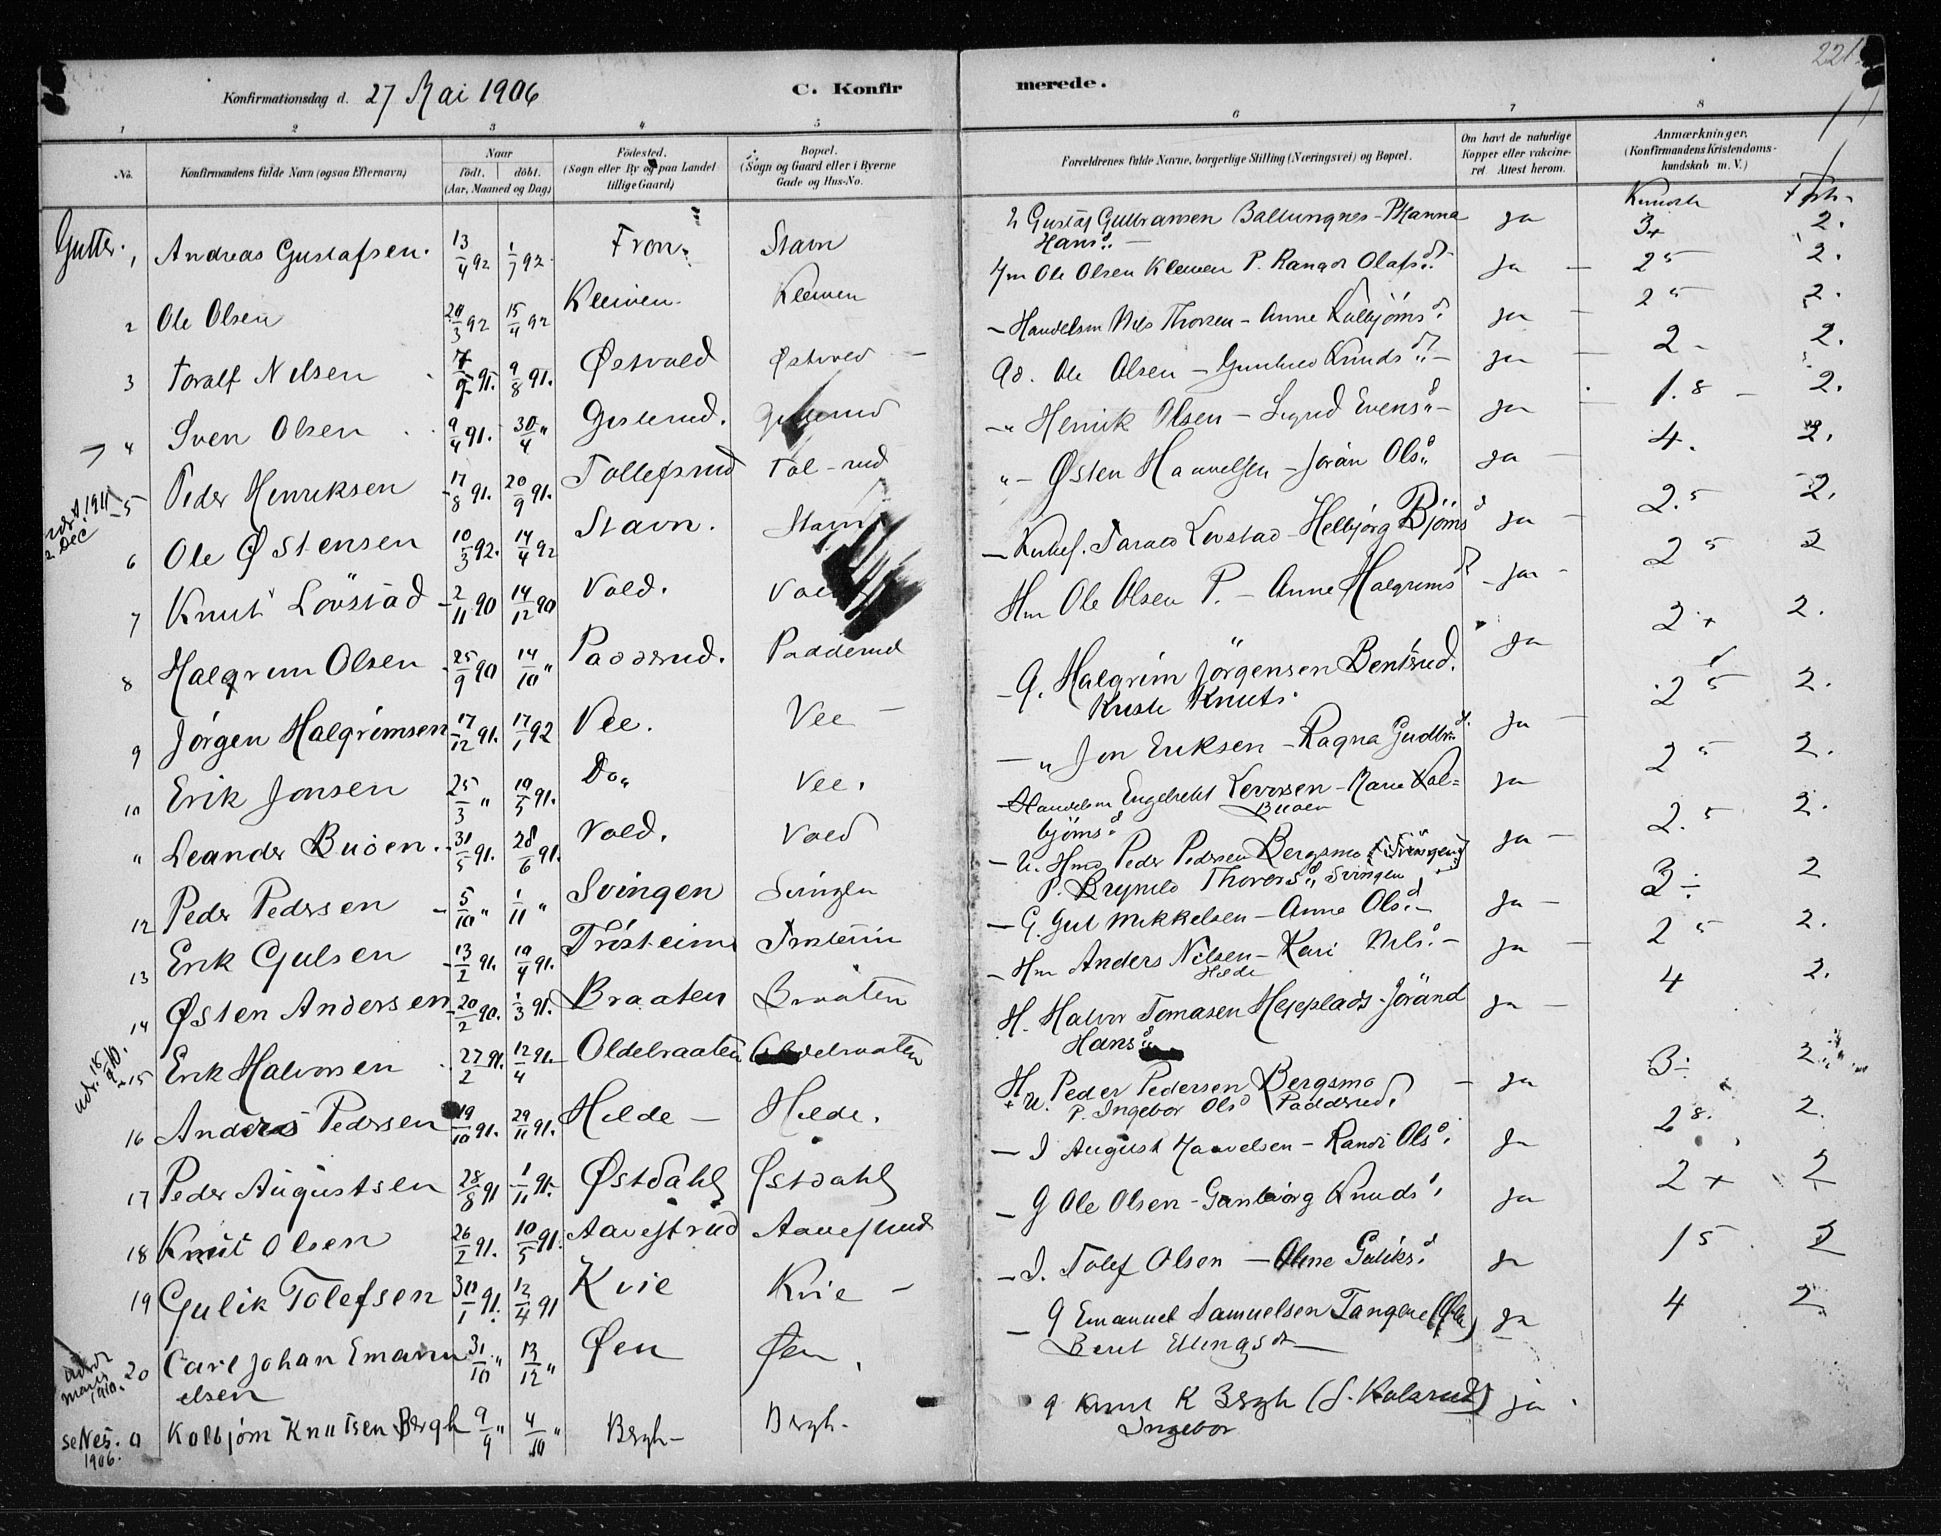 221.
Konfirmationsdag d. 27 Mai 1906 C. Konfirmerede.
1 2 3 4 5 6 7 8
No. Konfirmandens fulde Navn (ogsaa Efternavn) Naar født. døbt. (Aar, Maaned og Dag) Fødested. (Sogn eller By og paa Landet tillige Gaard) Bopæl. (Sogn og Gaard eller i Byerne Gade og Hus-No. Forældrenes fulde Navne, borgerlige Stilling (Næringsvei) og Bopæl. Om havt de naturlige Kopper eller vakcineret Attest herom. Anmærkninger. (Konfirmandens Kristendomskundskab m. V.)
Gutter. 1 Andreas Gustafsen. 13/4 92 1/7 92. Fron. Stavn Gustaf Gulbransen ja 3+ 2.
Hans d.
2 Ole Olsen 20/3 92 15/4 92 Kleiven. Kleiven Ole Olsen Kleiven P. Olafs d. ja 25 2.
3 Toralf Nilsen 91. 9/8 91. Østvold Østvold Handelsm Nils Thorsen - Anne Kolbjørns d. ja 25 2.
4 Sven Olsen 9/4 91. 30/4 " Gisterud. Ole Olsen - Gunhild Knuds d. ja 2 - 2.
udst. 1911 2. Dec 5 Peder Henriksen 17/8 91. 20/9 91. Tollefsrud Tol-rud Henrik Olsen - Sigrid Evens d. ja 1.8 - 2.
6 Ole Østensen 10/3 92. 14/4 92 Stavn. Stavn Østen Haavelsen - Jøran Ols d. ja 4. 2.
7 Knut Lövstad 2/11 90 14/12 90 Vold. Vold Lovstad - Helbjørg Bjørns d ja 2.5 2.
8 Halgrim Olsen 25/9 90 14/10 " Padderud. Padderud Hm Ole Olsen P. - Anne Halgrims d ja 25 2
9 Jörgen Halgrimsen 17/12 91. 17/1 92 Vee. Vee - G. Halgrim Jörgensen Bentsrud. ja 2+ 2.
Kristi Knuts.
10 Erik Jonsen 25/3 " 19/5 91. Do " Vee. - " Jon Eriksen - Ragna Gudbr d. ja 25 2.
" Leander Buöen. 31/5 91. 28/6 91. Vold. Vold Handelsm Engebrekt - Marie Kol=
Buøen
bjørns d. ja 25 2.
12 Peder Pedersen 5/10 " 1/11 " Svingen Svingen U. Hm Peder Pedersen Bergsmo (Svingen) ja 2.5 2.
P. Brynild Thorers d. Svingen
13 Erik Gulsen 13/2 91. 19/4 91. Trösteim Trösteim G. Gul Mikkelsen - Anne Ols d. - ja - 3÷ 2
14 Østen Andersen 20/2 90. 1/3 91. Braaten Braaten Hm Anders Nilsen - Kari Nils d. - ja 25 2.
Hilde
15 Erik Halvorsen 27/2 91. 12/4 91. Oldebraaten H. Halvor Tomasen - Jörand ja - 4 2.
Hans d.
16 Anders Pedersen 19/10 91. 29/11 91. Hilde - Hilde. Peder Pedersen Bergsmo - ja 3÷ 2.
P. Ingebor Ols d Padderud
17 Peder Augustsen 28/8 91 1/11 91. Østdahl Østdahl - I August Haavelsen - Randi Ols d. ja 28. 2.
18 Knut Olsen 26/2 91. 10/5 91. Aavestrud Aavestrud - G Ole Olsen - Gunbiorg Knuds d. ja 2+ 2
19 Gulik Tolefsen 30/1 91. 12/4 91 Kvie Kvie - - I. Tolef Olsen - Oline Guliks d. ja 15 2
20 Carl Johan Emanuelsen 31/10 " 13/12 " Øen Øen - G Emanuel Samuelsen Tangene ja 4 2
Berit Ellings d. -
Nes. 1906. Kolbjørn Knutsen Bergh 9/9 " 4/10 " Bergh - Bergh. Knut K Bergh ja
Ingebor